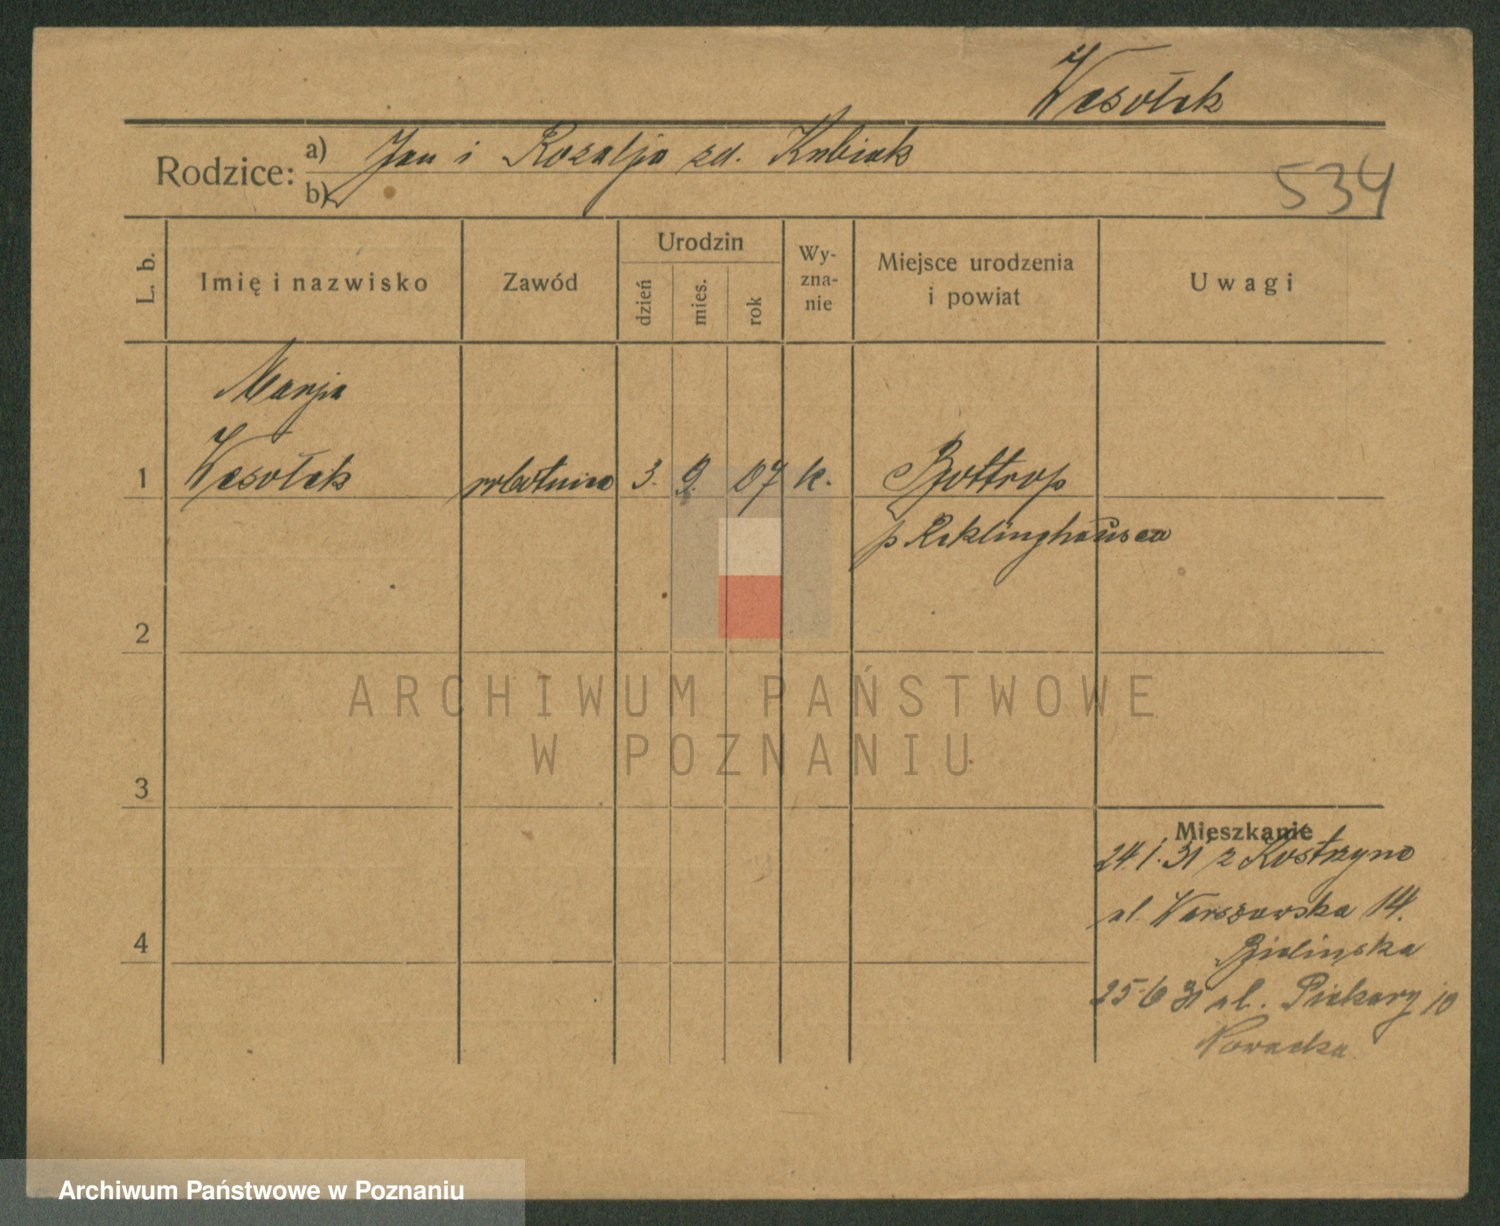 Wesołek
Rodzice: a) Jan i Rozalja zd. Kubiak
b)
534
L. b.
Imię i nazwisko
Zawód
Urodzin
dzień
mies.
rok
Wy-
zna-
nie
Miejsce urodzenia
i powiat
Uwagi
Marja
1 Wesołek robotnica 3. 9. 07 k. Bottrop
p Reklinghausen
2
3
4
Mieszkanie
24.1.31 z Kostrzyna
ul. Warszawska 14.
Bielińska
25.6 31 ul. Piekary 10
Nowacka
ARCHIWUM PAŃSTWOWE
W POZNANIU
Archiwum Państwowe w Poznaniu